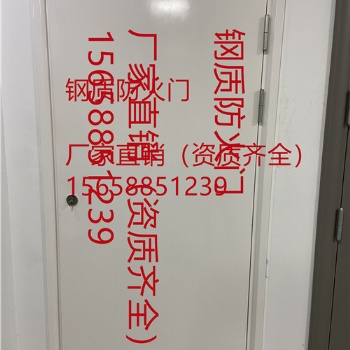 钢质防火门
厂家直销（资质齐全）
15658851239
钢质防火门
厂家直销（资质齐全）
15658851239